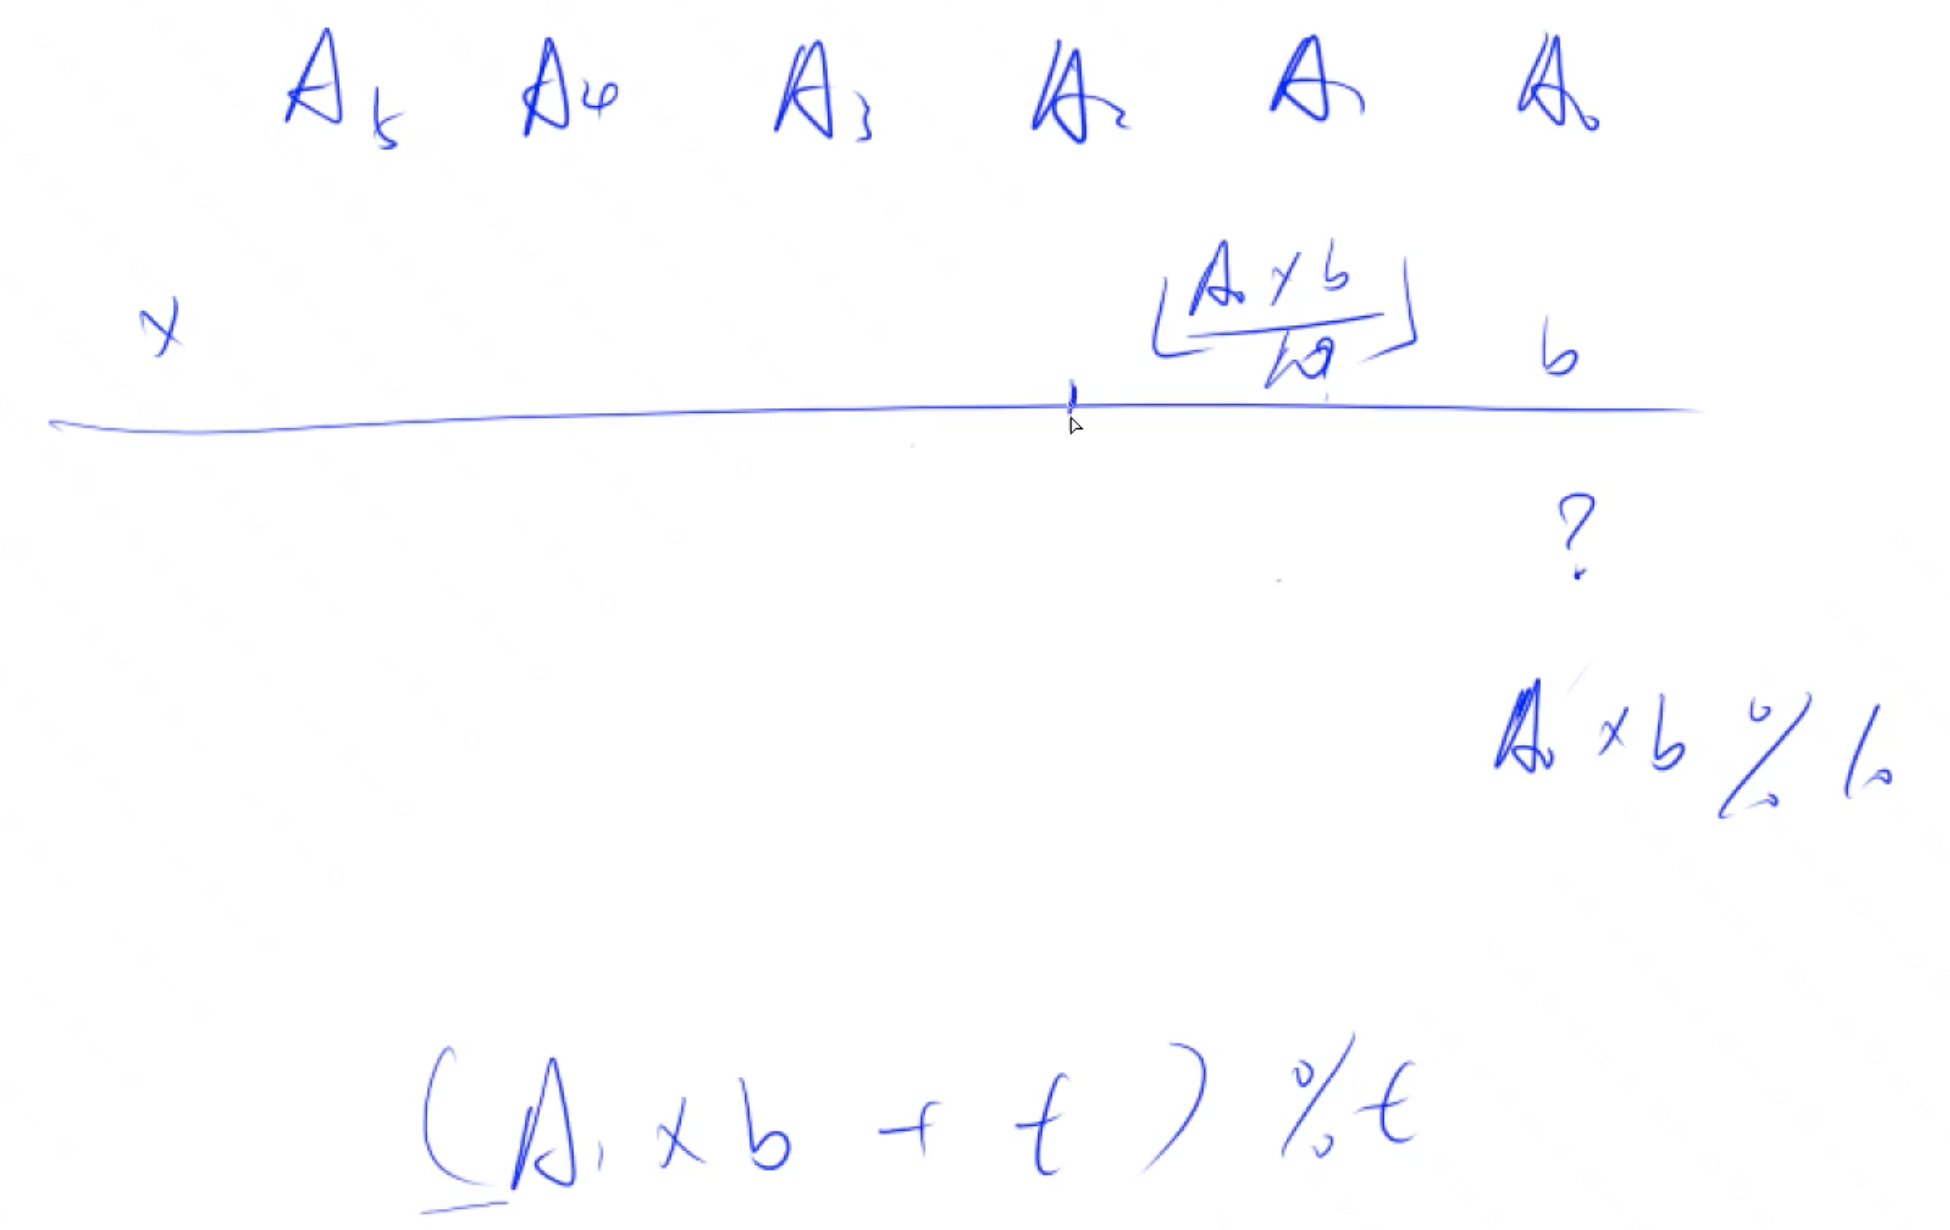 A₅ A₄ A₃ A₂ A₁ A₀
× ⌊(A₀ × b)/10⌋ b
?
A₀ × b % 10
(A₁ × b + t) % t